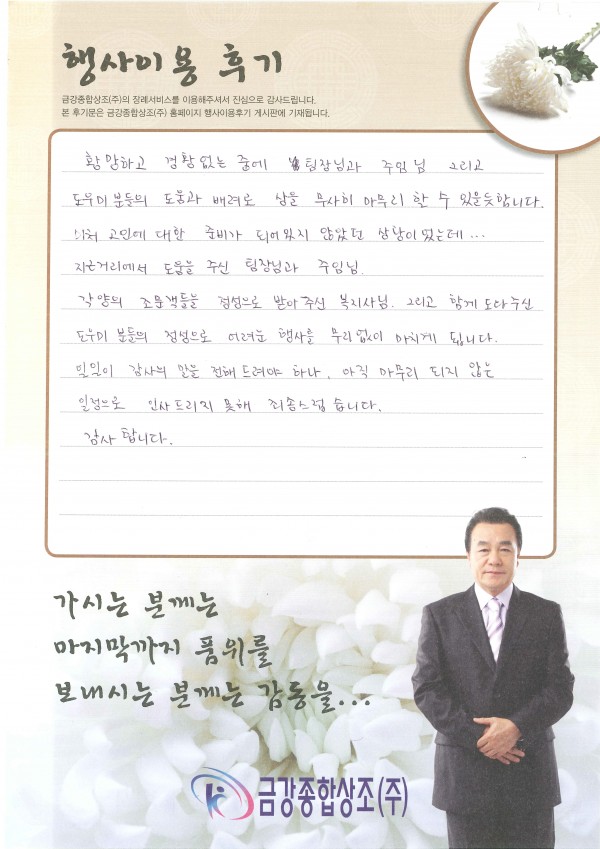 행사이용 후기
금강종합상조(주)의 장례서비스를 이용해주셔서 진심으로 감사드립니다.
본 후기문은 금강종합상조(주) 홈페이지 행사이용후기 게시판에 기재됩니다.
황망하고 경황없는 중에 팀장님과 주임님 그리고
도우미분들의 도움과 배려로 상을 무사히 마무리 할 수 있을듯합니다.
미처 고인에 대한 준비가 되어있지 않았던 상황이었는데...
지근거리에서 도움을 주신 팀장님과 주임님.
각양의 조문객들을 정성으로 받아주신 복지사님. 그리고 함께 도와주신
도우미 분들의 정성으로 어려운 행사를 무리없이 마치게 됩니다.
일일이 감사의 말을 전해드려야 하나, 아직 마무리 되지 않은
일정으로 인사드리지 못해 죄송스럽습니다.
감사합니다.
가시는 분께는
마지막까지 품위를
보내시는 분께는 감동을...
금강종합상조(주)